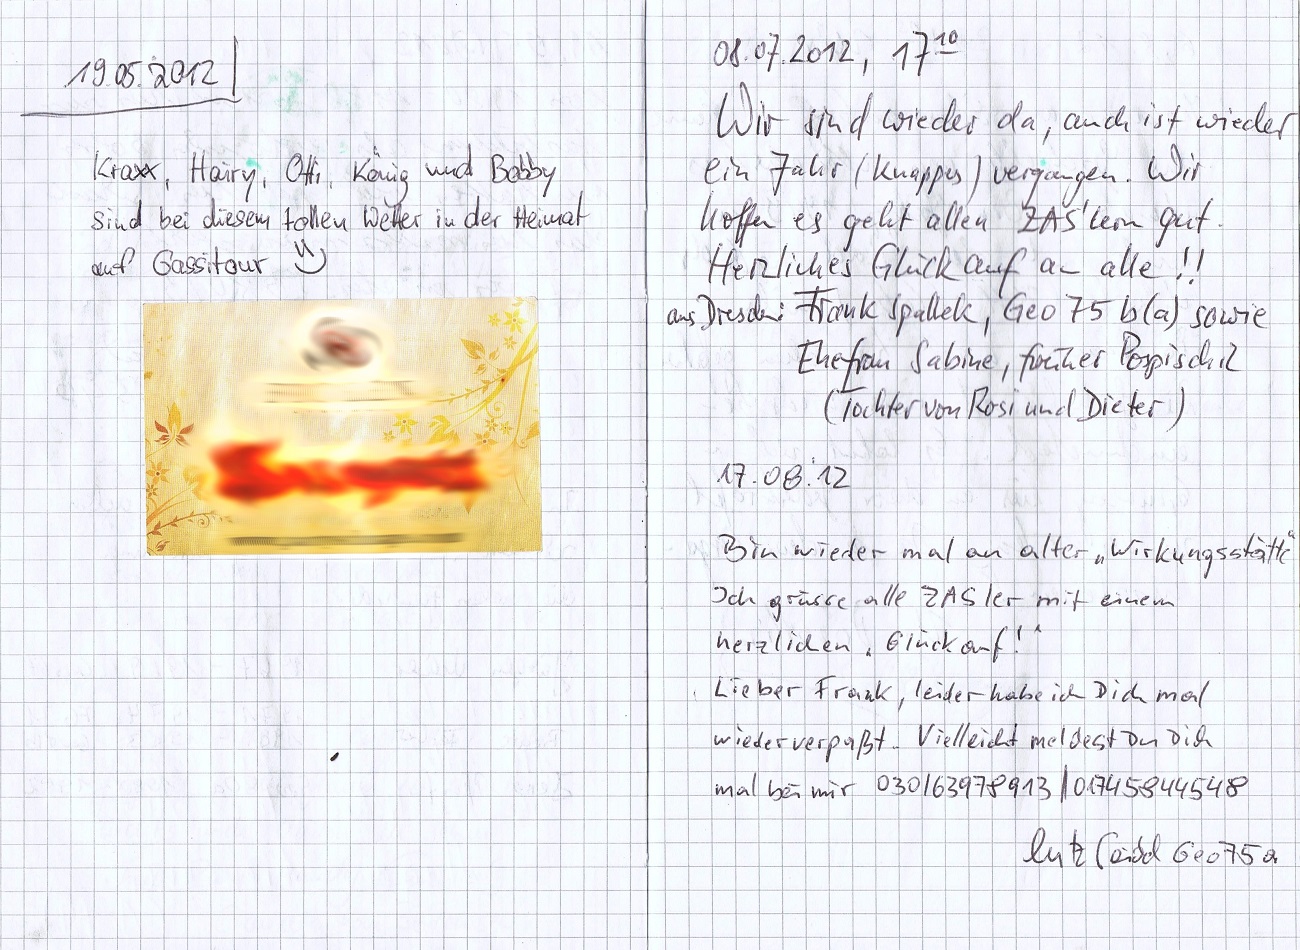 19.05.2012
Kraxx, Hairy, Otti, König und Bobby
sind bei diesem tollen Wetter in der Heimat
auf Gassitour
08.07.2012, 17¹⁰
Wir sind wieder da, auch ist wieder
ein Jahr (knappes) vergangen. Wir
hoffen es geht allen ZAS'lern gut.
Herzliches Glück auf an alle!!
aus Dresden: Frank Spallek, Geo 75 b(a) sowie
Ehefrau Sabine, früher Pospischil
(Tochter von Rosi und Dieter)
17.08.'12
Bin wieder mal an alter „Wirkungsstätte“
Ich grüsse alle ZASler mit einem
herzlichen „Glück auf!“
Lieber Frank, leider habe ich Dich mal
wieder verpaßt. Vielleicht meldest Du Dich
mal bei mir 030/63978913 / 01745844548
Lutz Geo75a